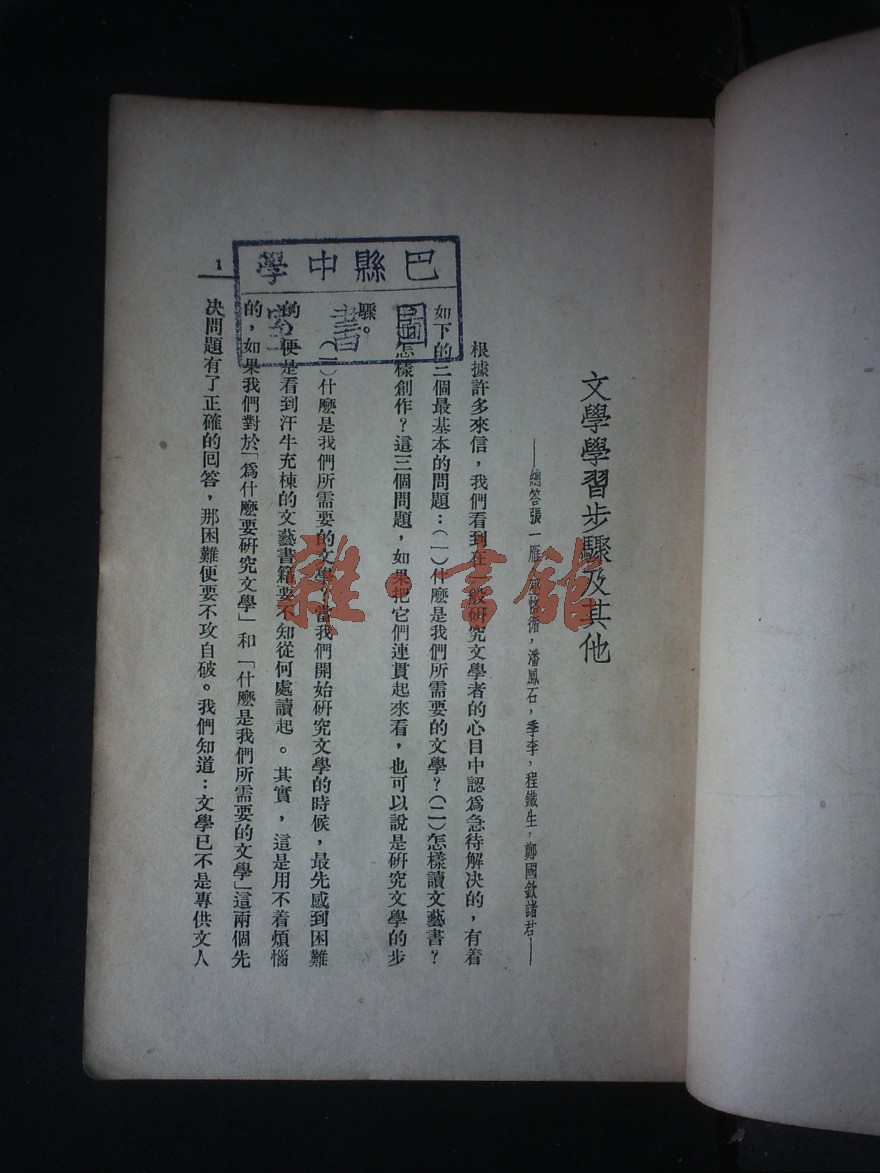 文學學習步驟及其他
——總答張一雁，潘鳳石，季李，程鐵生，鄭國欽諸君——
根據許多來信，我們看到在一般研究文學者的心目中認爲急待解决的，有着
如下的三個最基本的問題：（一）什麽是我們所需要的文學？（二）怎樣讀文藝書？
怎樣創作？這三個問題，如果把它們連貫起來看，也可以說是研究文學的步
驟。
（一）什麽是我們所需要的文學？當我們開始研究文學的時候，最先感到困難
的，便是看到汗牛充棟的文藝書籍要不知從何處讀起。其實，這是用不着煩惱
的，如果我們對於「爲什麽要研究文學」和「什麽是我們所需要的文學」這兩個先
决問題有了正確的回答，那困難便要不攻自破。我們知道：文學已不是專供文人
1
巴縣中學
圖書室
雜·書館